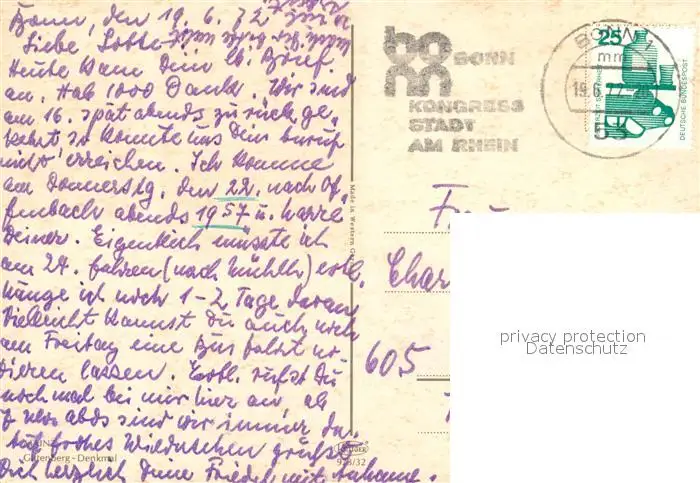 Bonn, den 19. 6. 72
Liebe Lotte
Heute kam Dein lb. Brief
an. Hab 1000 Dank. Wir sind
am 16. spät abends zurückge-
kehrt so konnte uns Dein Anruf
nicht erreichen. Ich komme
am Donnerstg. den 22. nach Of-
fenbach abends 1957 u. harre
Deiner. Eigentlich müsste ich
am 24. fahren (nach Mühlh) evtl.
hänge ich noch 1-2 Tage daran
Vielleicht kannst Du auch noch
am Freitag eine Bus fahrt
lassen. Evtl. rufst Du
noch mal bei mir hier an, ab
7 abds sind wir immer da.
Auf frohes Wiedersehen grüßt
Dich herzlich Deine Friedel mit Anhang.
MAINZ
Gutenberg-Denkmal
Made in Western Ger
KRÜGER
928/32
BONN
KONGRESS
STADT
AM RHEIN
BONN 1
mm
19.6.72
53
25
DEUTSCHE BUNDESPOST
Frau
Char
605
privacy protection
Datenschutz